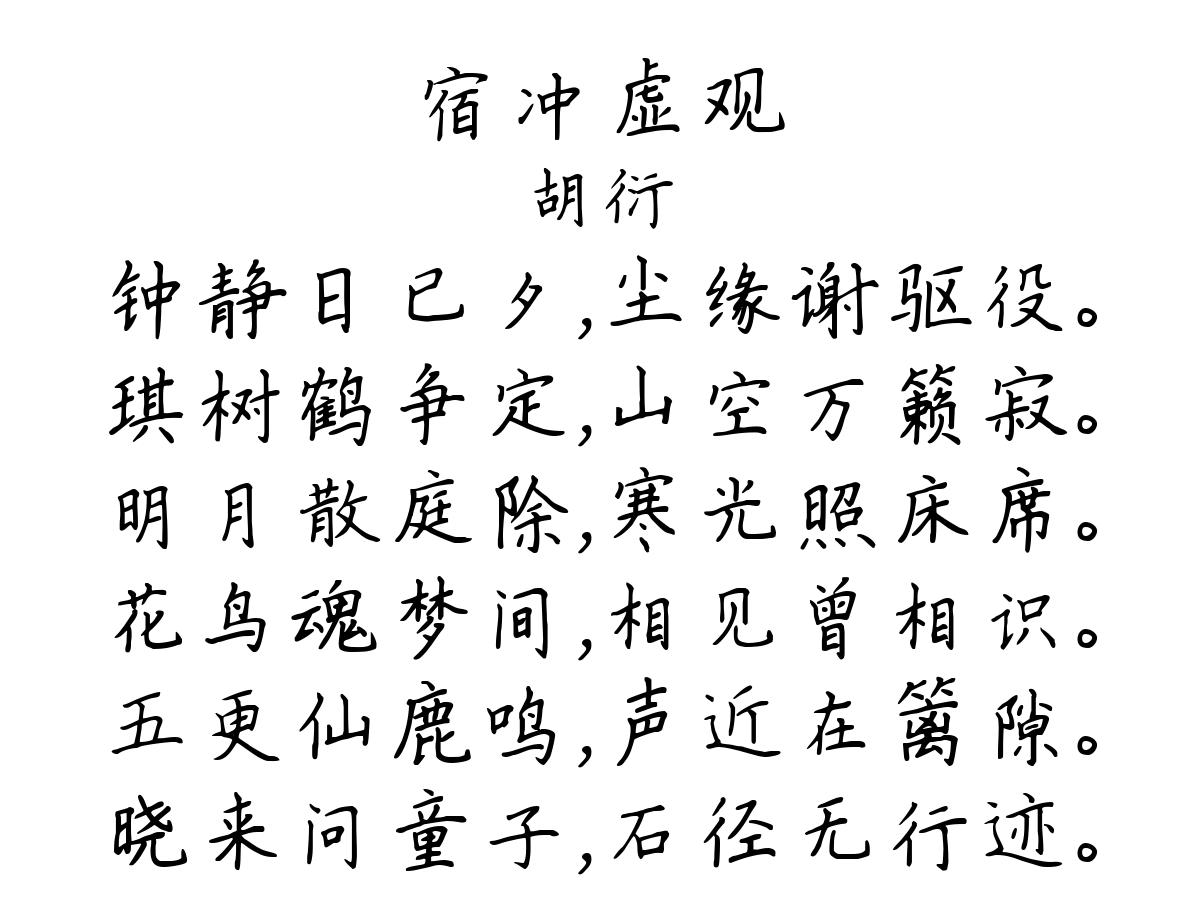 宿冲虚观
胡衍
钟静日已夕,尘缘谢驱役。
琪树鹤争定,山空万籁寂。
明月散庭除,寒光照床席。
花鸟魂梦间,相见曾相识。
五更仙鹿鸣,声近在篱隙。
晓来问童子,石径无行迹。